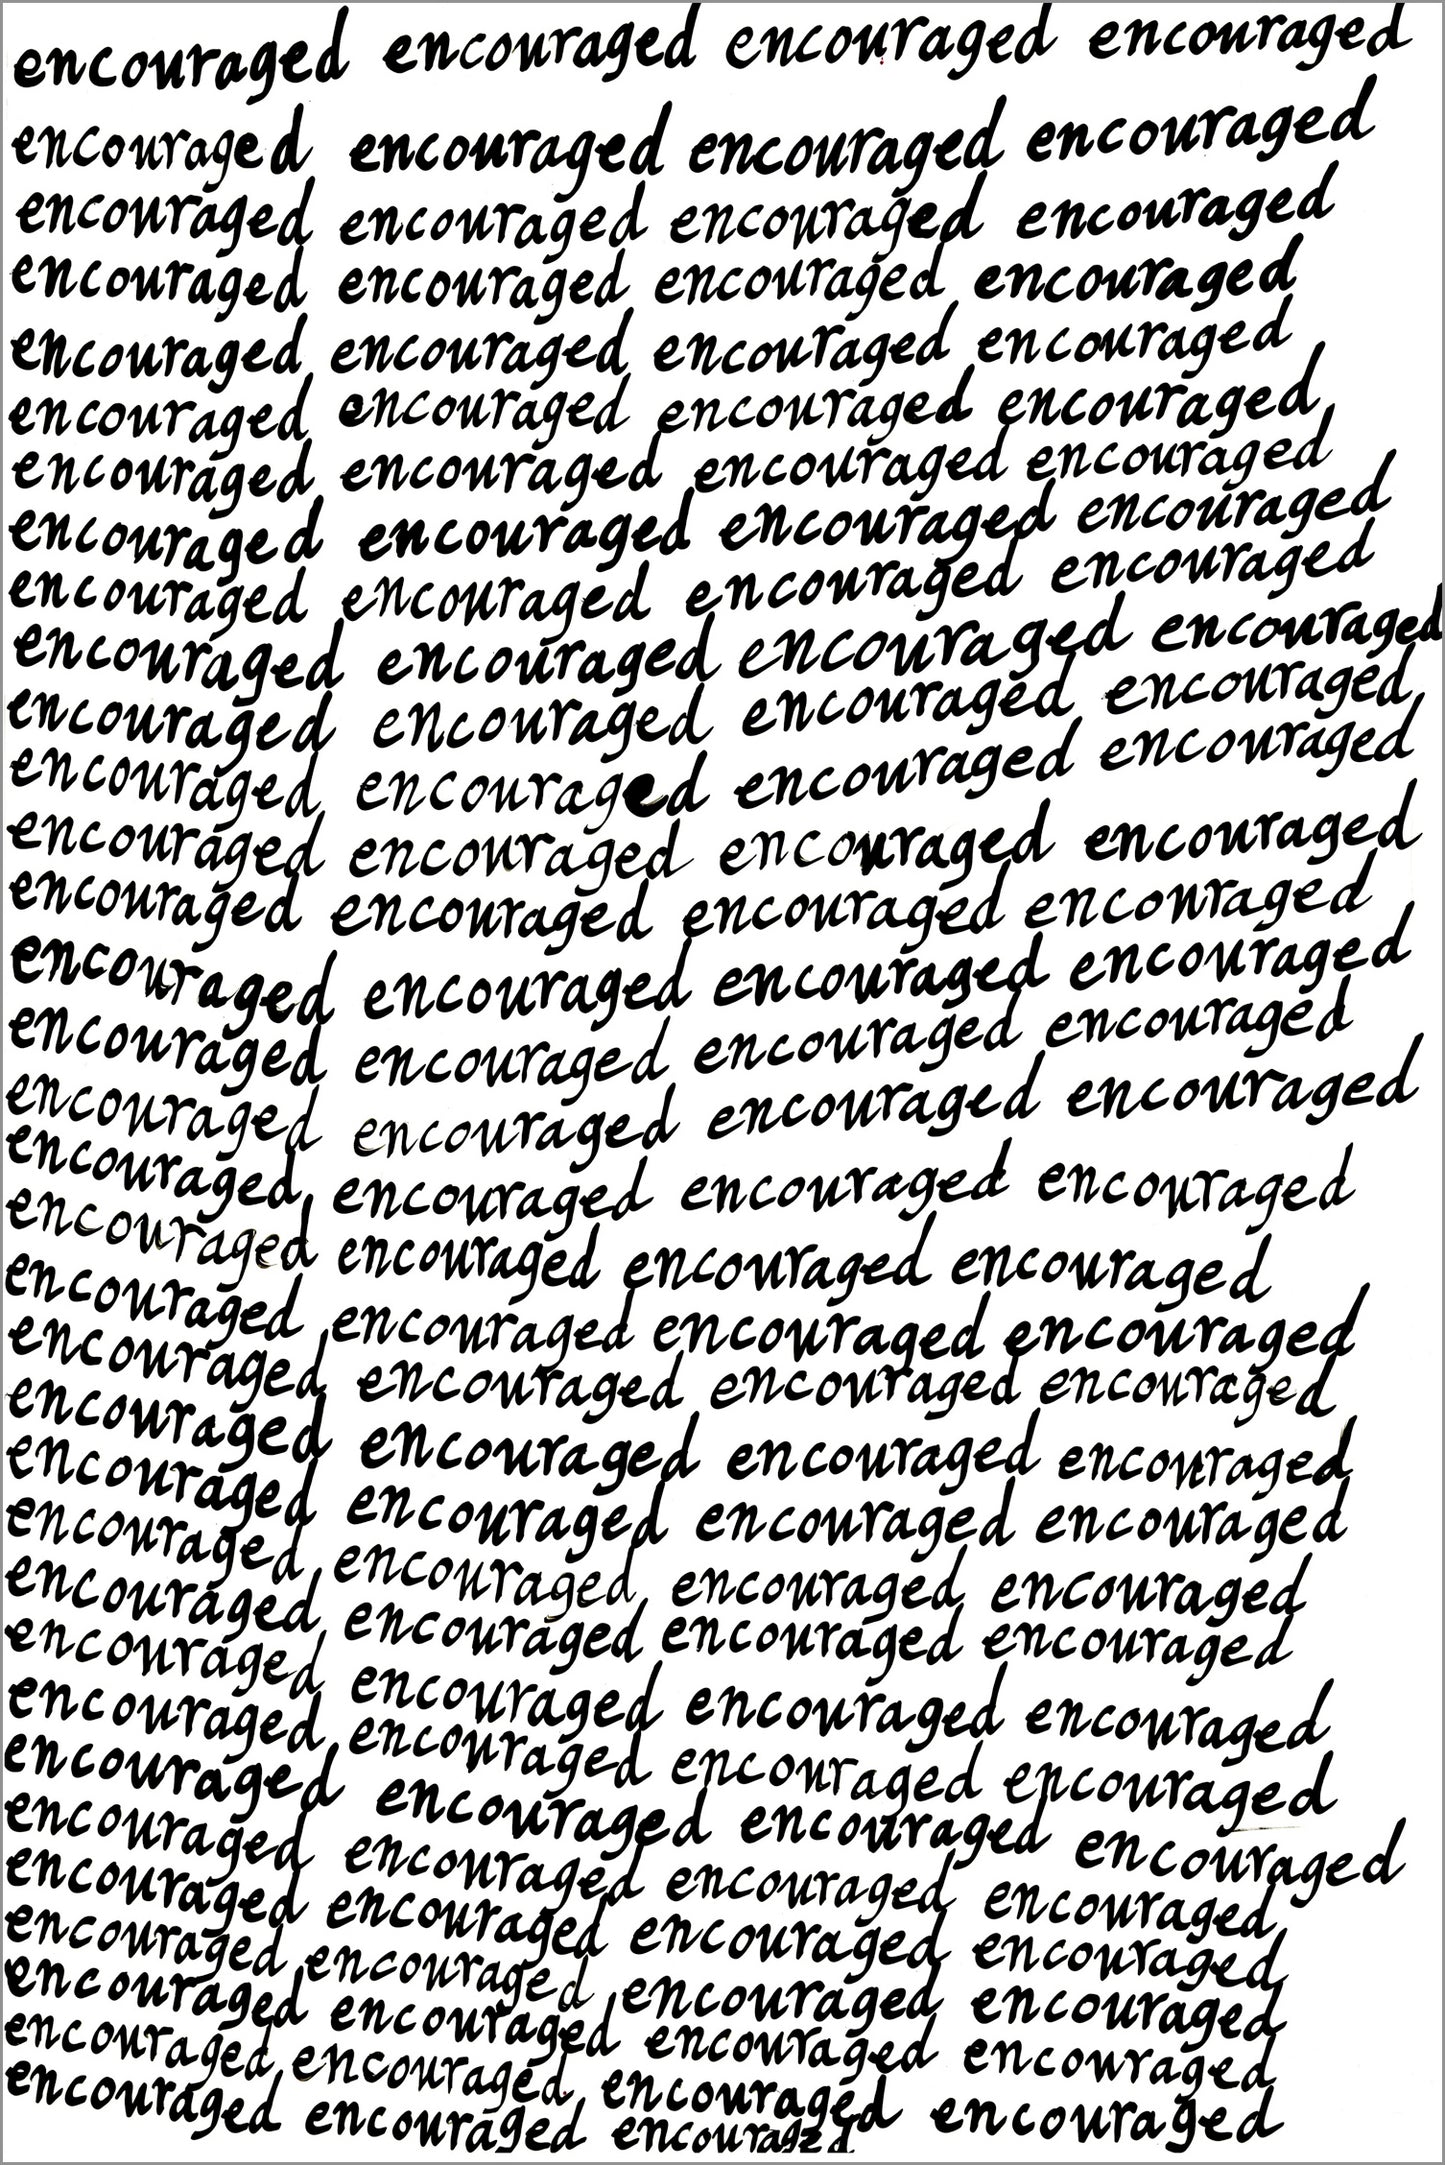 encouraged encouraged encouraged encouraged
encouraged encouraged encouraged encouraged
encouraged encouraged encouraged encouraged
encouraged encouraged encouraged encouraged
encouraged encouraged encouraged encouraged
encouraged encouraged encouraged encouraged
encouraged encouraged encouraged encouraged
encouraged encouraged encouraged encouraged
encouraged encouraged encouraged encouraged
encouraged encouraged encouraged encouraged
encouraged encouraged encouraged encouraged
encouraged encouraged encouraged encouraged
encouraged encouraged encouraged encouraged
encouraged encouraged encouraged encouraged
encouraged encouraged encouraged encouraged
encouraged encouraged encouraged encouraged
encouraged encouraged encouraged encouraged
encouraged encouraged encouraged encouraged
encouraged encouraged encouraged encouraged
encouraged encouraged encouraged encouraged
encouraged encouraged encouraged encouraged
encouraged encouraged encouraged encouraged
encouraged encouraged encouraged encouraged
encouraged encouraged encouraged encouraged
encouraged encouraged encouraged encouraged
encouraged encouraged encouraged encouraged
encouraged encouraged encouraged encouraged
encouraged encouraged encouraged encouraged
encouraged encouraged encouraged encouraged
encouraged encouraged encouraged encouraged
encouraged encouraged encouraged encouraged
encouraged encouraged encouraged encouraged
encouraged encouraged encouraged encouraged
encouraged encouraged encouraged